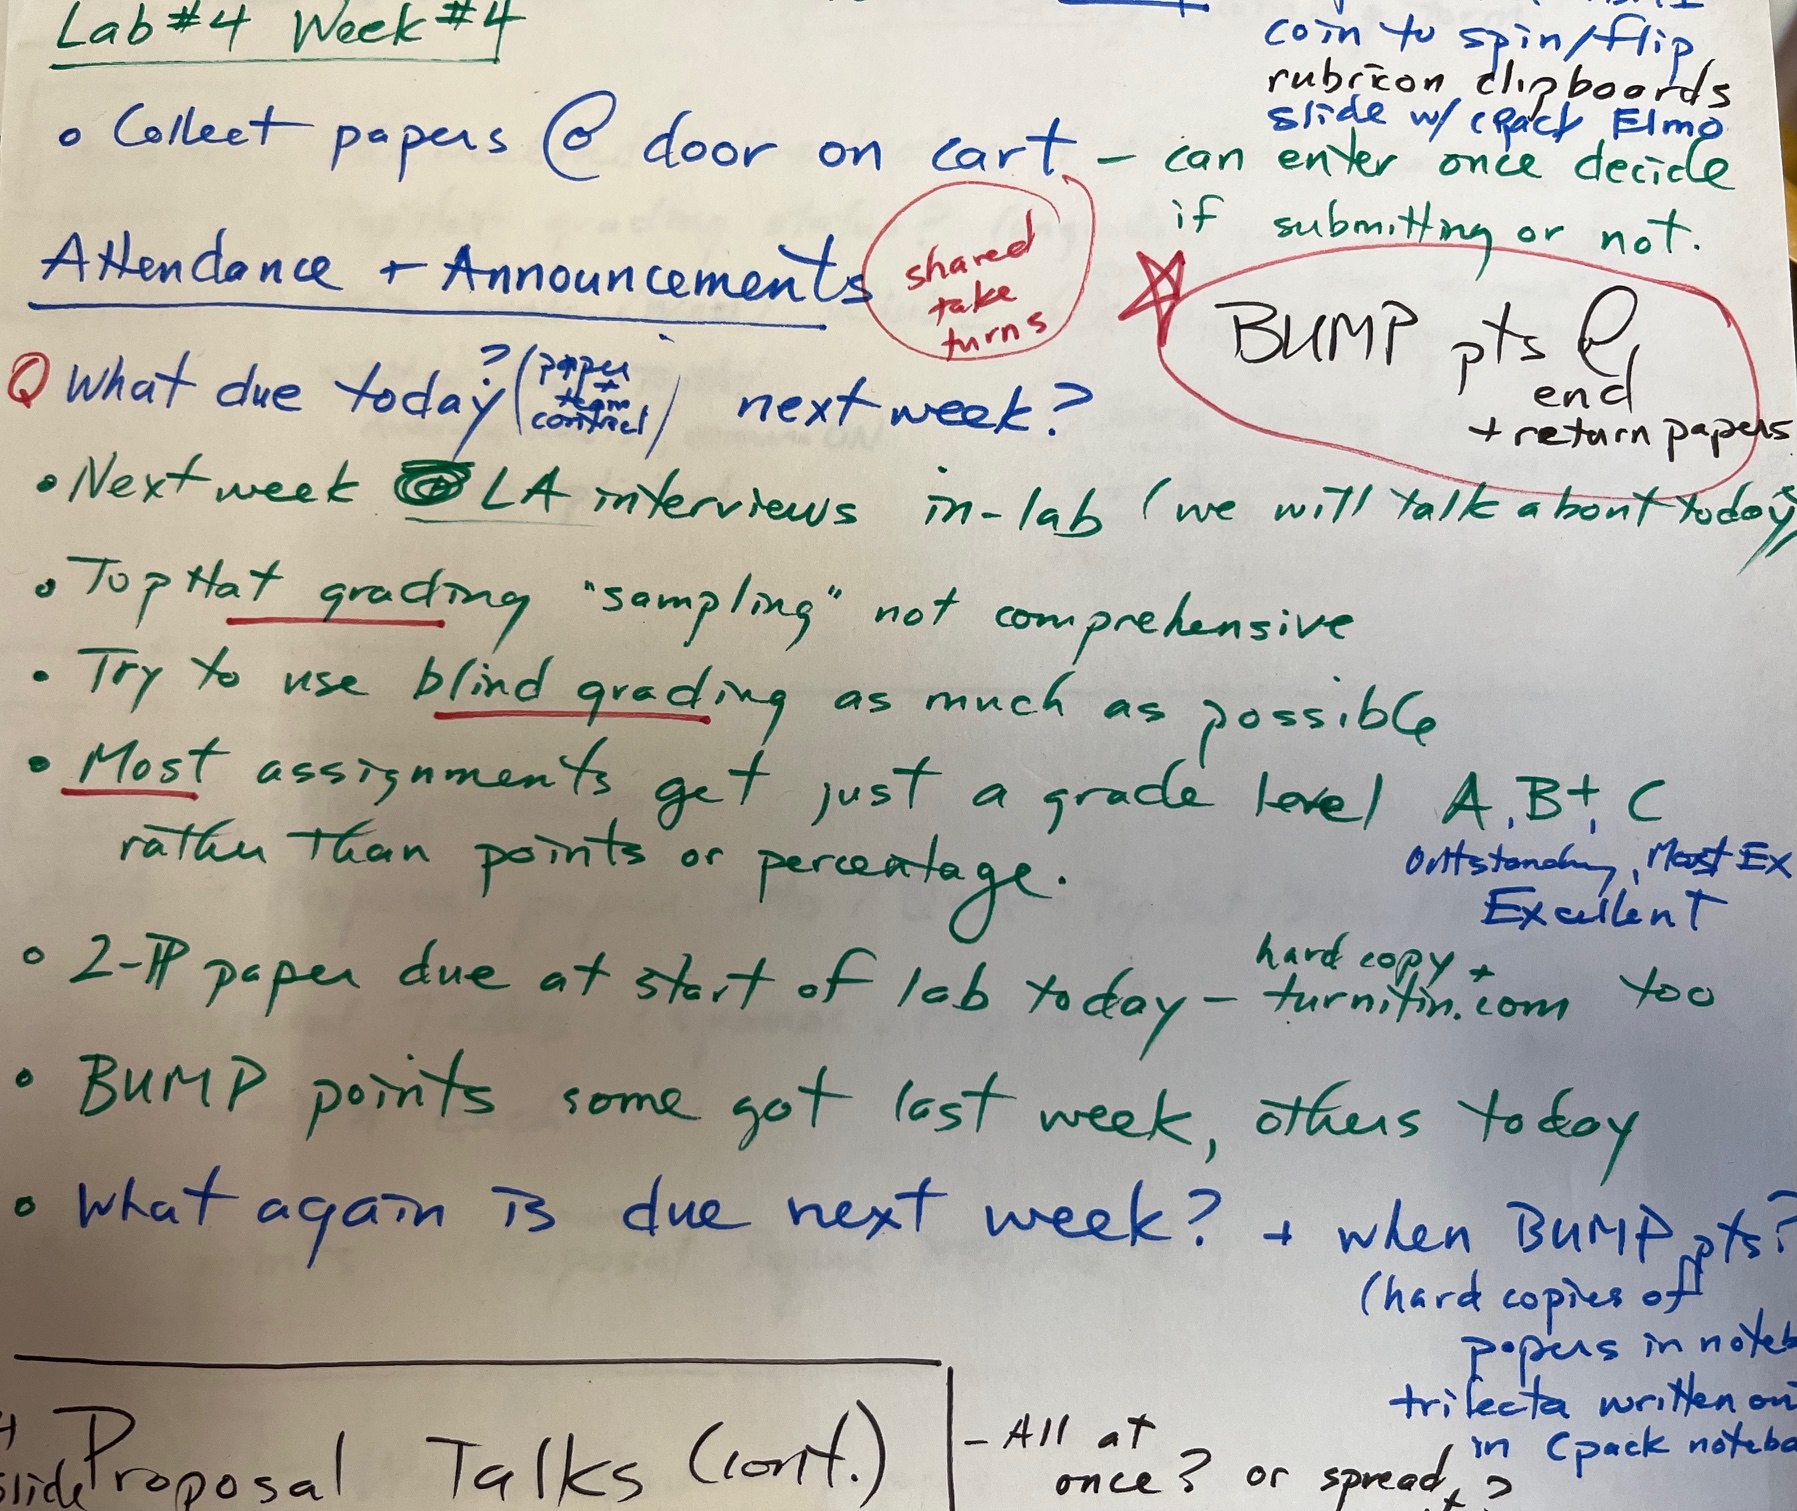 Lab #4 Week #4
coin to spin/flip
rubricon clipboards
slide w/ cpack Elmo
• Collect papers @ door on cart – can enter once decide
if submitting or not.
Attendance + Announcements
shared
take
turns
BUMP pts @
end
+ return papers
Q What due today? (paper
+
team
contract) next week?
• Next week LA interviews in-lab (we will talk about today)
• TopHat grading "sampling" not comprehensive
• Try to use blind grading as much as possible
• Most assignments get just a grade level A, B+, C
rather than points or percentage.
Outstanding, Most Ex
Excellent
• 2-P paper due at start of lab today – hard copy +
turnitin.com too
• BUMP points some got last week, others today
• What again is due next week? + when BUMP pts?
(hard copies of
papers in noteb
trifecta written out
in Cpack notebo
slide Proposal Talks (cont.)
– All at
once? or spread